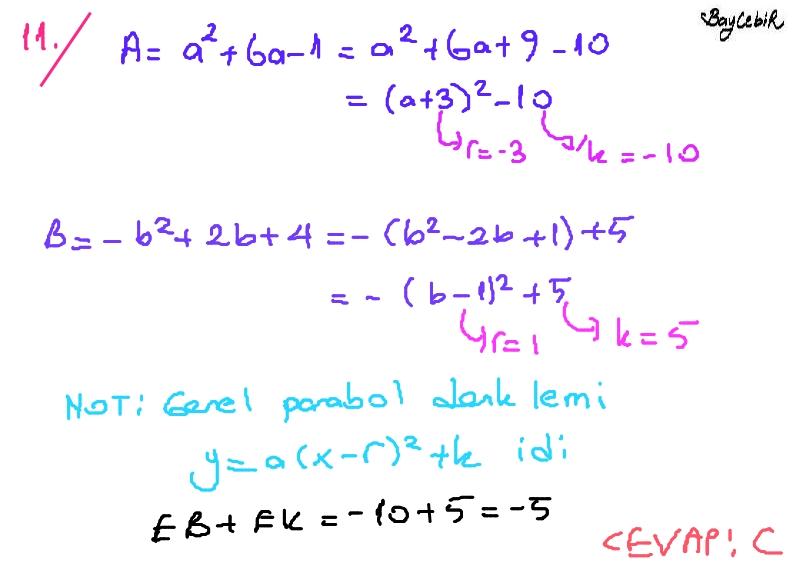 BayCebiR
11./ A = a² + 6a - 1 = a² + 6a + 9 - 10
= (a+3)² - 10
r = -3 k = -10
B = - b² + 2b + 4 = - (b² - 2b + 1) + 5
= - (b - 1)² + 5
r = 1 k = 5
NOT: Genel parabol denklemi
y = a(x-r)² + k idi
EB + EK = -10 + 5 = -5
CEVAP: C